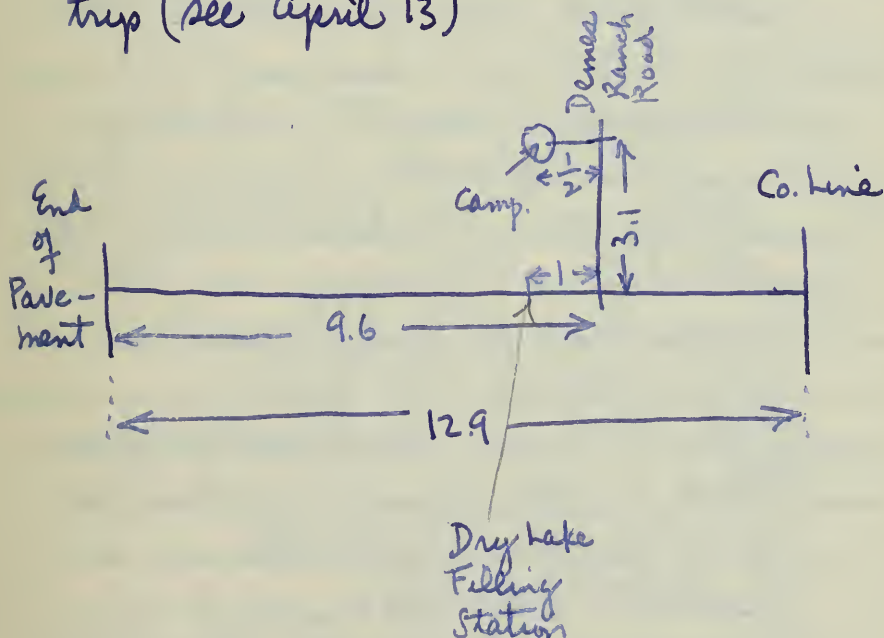 trip (see April 13)
Demes
Ranch
Road
Camp.
1/2
3.1
Co. Line
End
of
Pave-
ment
1
9.6
12.9
Dry Lake
Filling
Station